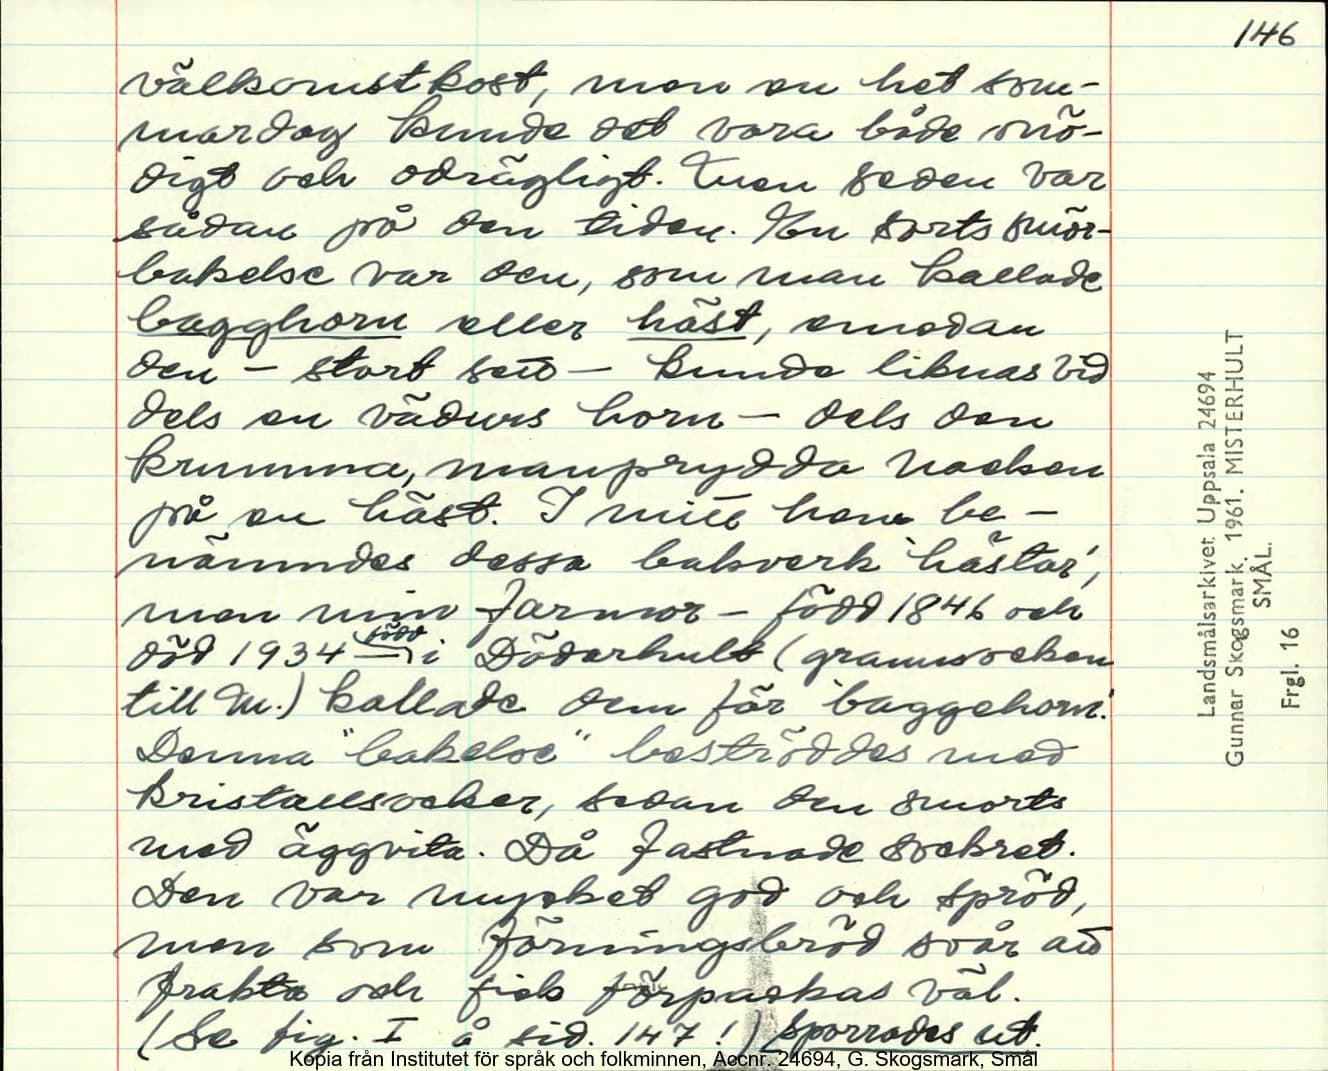 146
välkomstkost, men en het som-
mardag kunde det vara både onö-
digt och odrägligt. Men seden var
sådan på den tiden. En sorts smör-
bakelse var den, som man kallade
bagghorn eller häst, emedan
den – stort sett – kunde liknas vid
dels en vädurs horn – dels den
krumma, manprydda nacken
på en häst. I mitt hem be-
nämndes dessa bakverk 'hästar',
men min farmor – född 1846 och
död 1934 – född i Döderhult (grannsocken
till M.) kallade dem för 'baggehorn'.
Denna "bakelse" beströddes med
kristallsocker, sedan den smorts
med äggvita. Då fastnade sockret.
Den var mycket god och spröd,
men som förningsbröd svår att
frakta och fick förpackas väl.
(Se fig. I å sid. 147!) sporrades ut.
Landsmålsarkivet Uppsala 24694
Gunnar Skogsmark. 1961. MISTERHULT
SMÅL.
Frgl. 16
Kopia från Institutet för språk och folkminnen, Accnr. 24694, G. Skogsmark, Smål